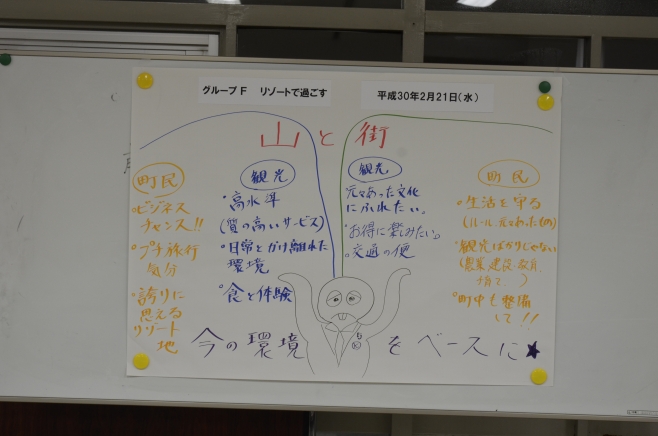 グループF　リゾートで過ごす
平成30年2月21日(水)
山と街
町民
・ビジネス
チャンス!!
・プチ旅行
気分
・誇りに
思える
リゾート
地
観光
・高水準
(質の高いサービス)
・日常とかけ離れた
環境
・食と体験
観光
元々あった文化
にふれたい。
・お得に楽しみたい。
・交通の便
町民
・生活を守る
(ルール 元々あったもの)
・観光ばかりじゃない
(農業、建設、教育、
子育て、)
・町中も整備
して!!
今の環境をベースに★